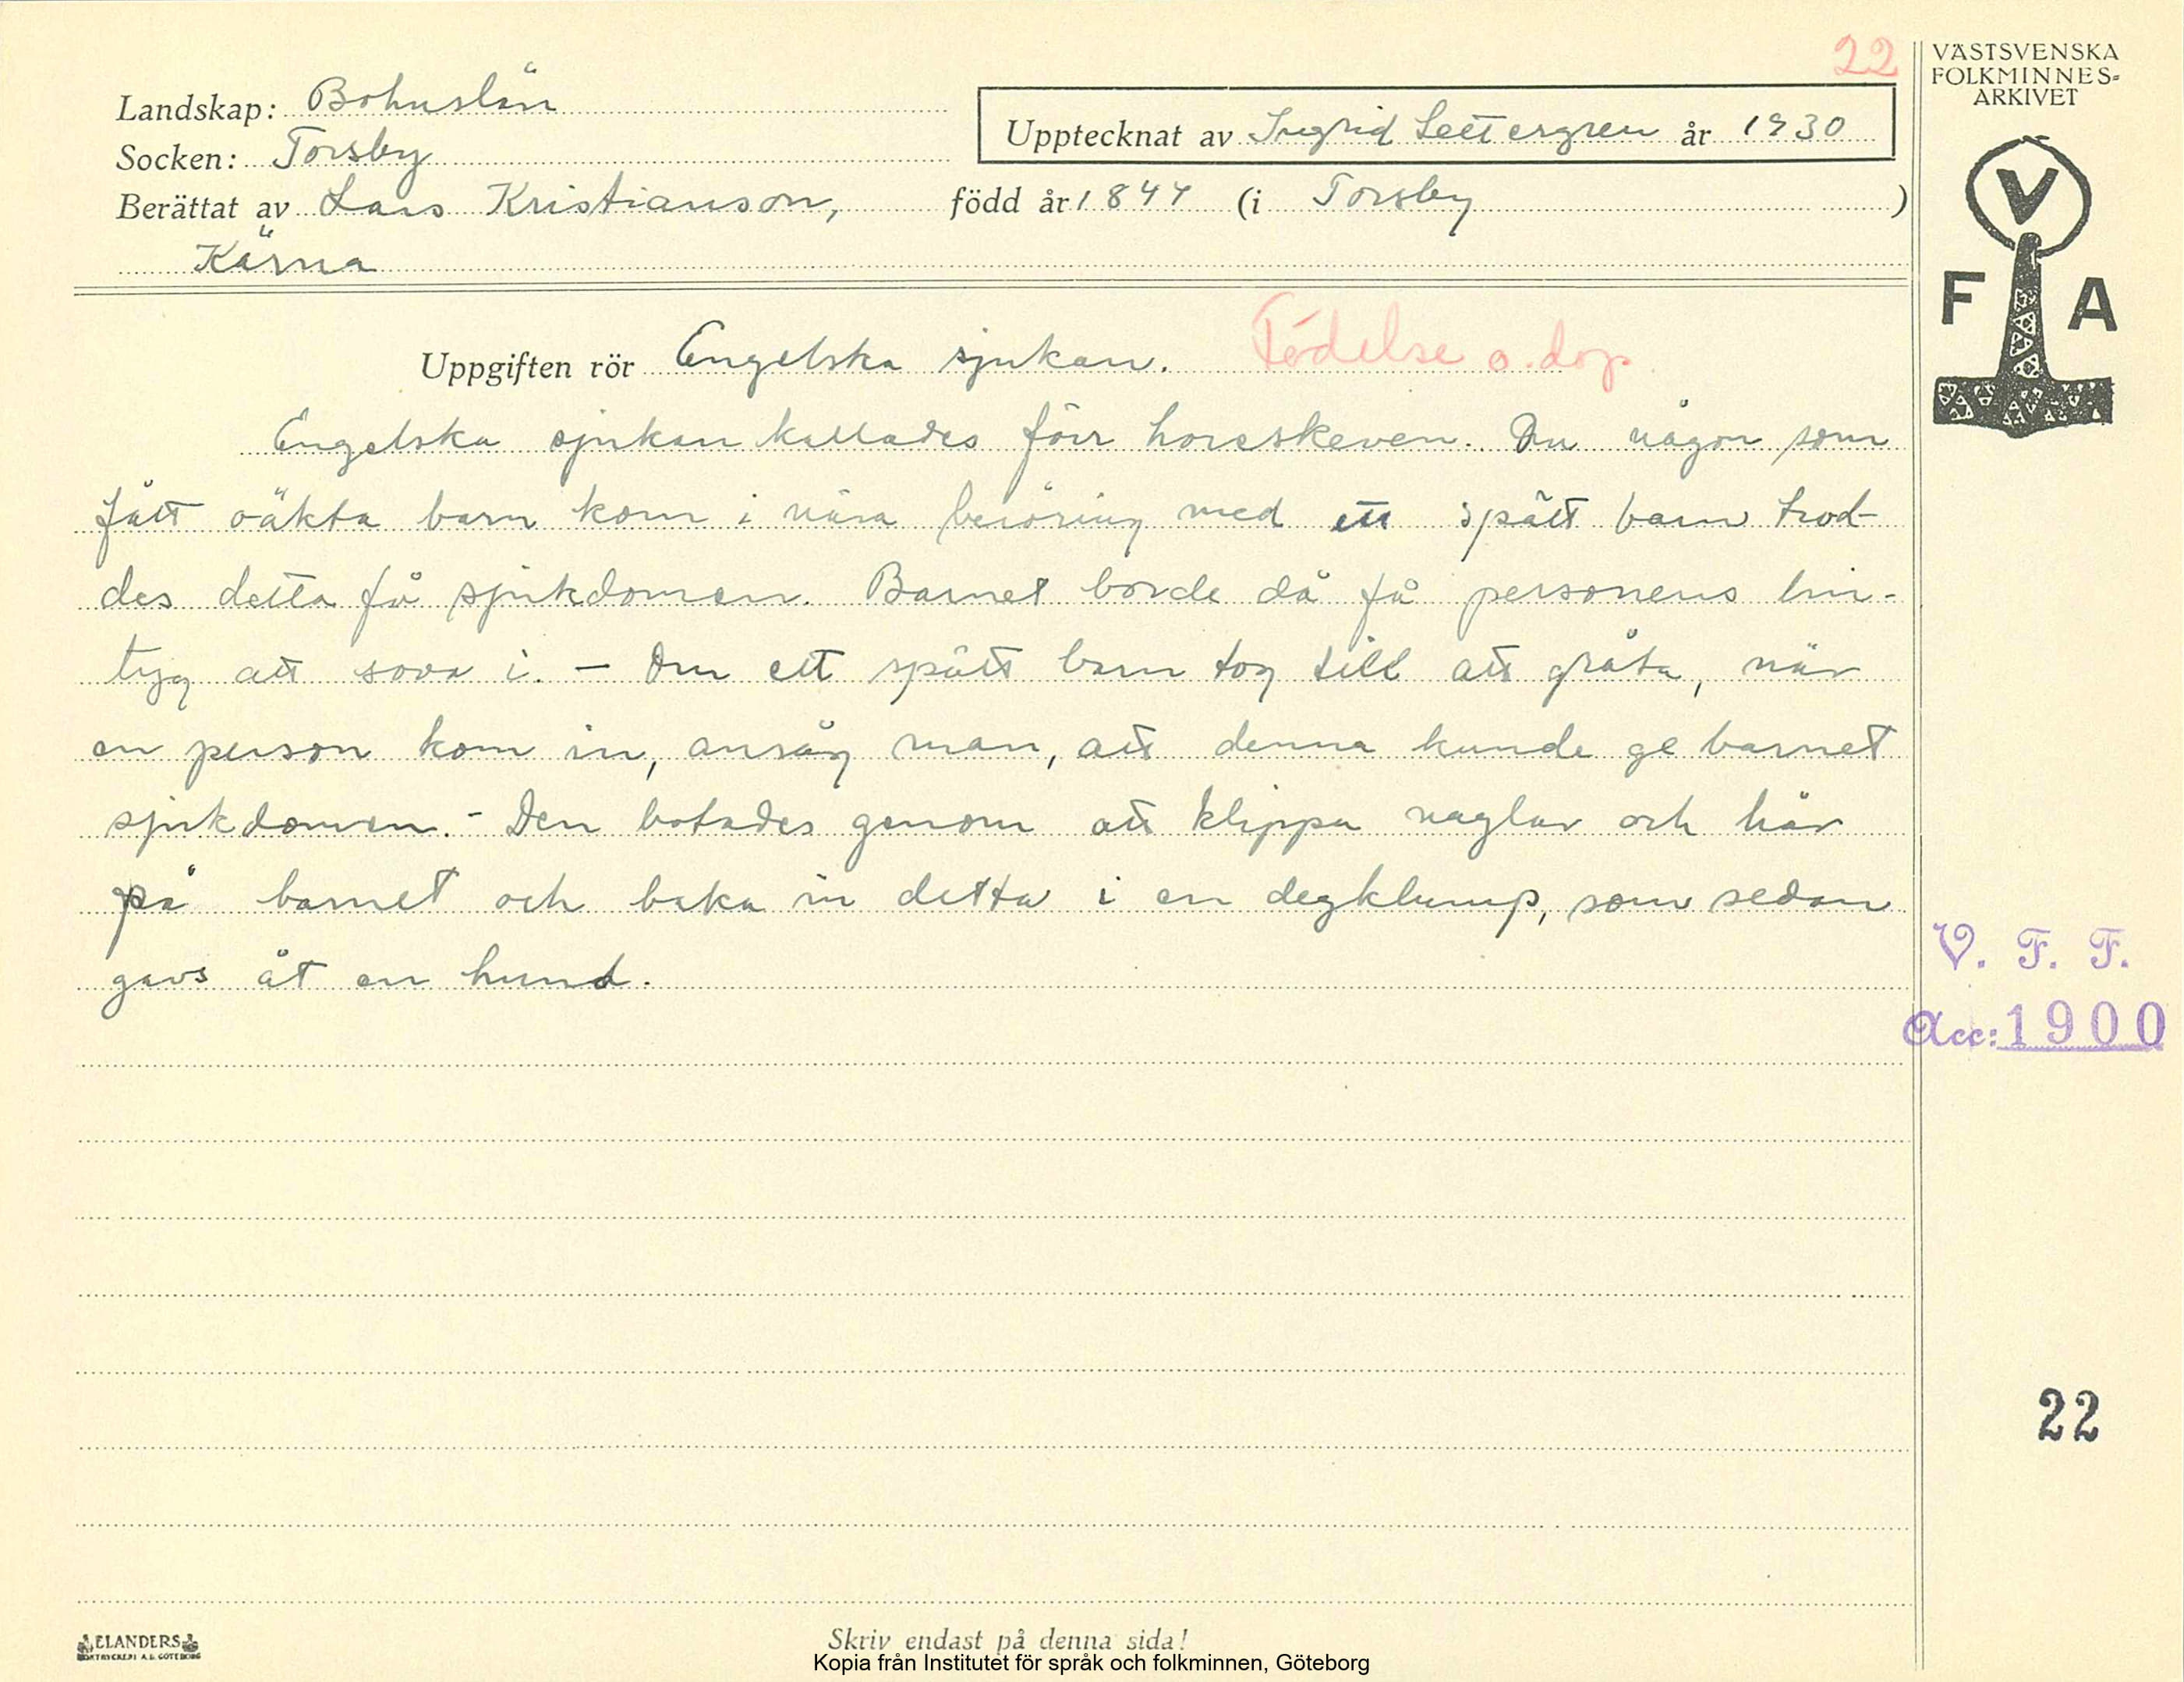 22
VÄSTSVENSKA
FOLKMINNES-
ARKIVET
Landskap: Bohuslän
Upptecknat av Ingrid Settergren år 1930
Socken: Torsby
Berättat av Lars Kristianson, född år 1847 (i Torsby )
Kärna
V
F A
Uppgiften rör Engelska sjukan. Födelse o. dop
Engelska sjukan kallades förr horeskeven. Om någon som
fått oäkta barn kom i nära beröring med ett spätt barn trod-
des detta få sjukdomen. Barnet borde då få personens lin-
tyg att sova i. – Om ett spätt barn tog till att gråta, när
en person kom in, ansåg man, att denna kunde ge barnet
sjukdomen. - Den botades genom att klippa naglar och hår
på barnet och baka in detta i en degklump, som sedan
gavs åt en hund.
V. F. F.
Acc: 1900
22
ELANDERS
BOKTRYCKERI A.B. GÖTEBORG
Skriv endast på denna sida!
Kopia från Institutet för språk och folkminnen, Göteborg